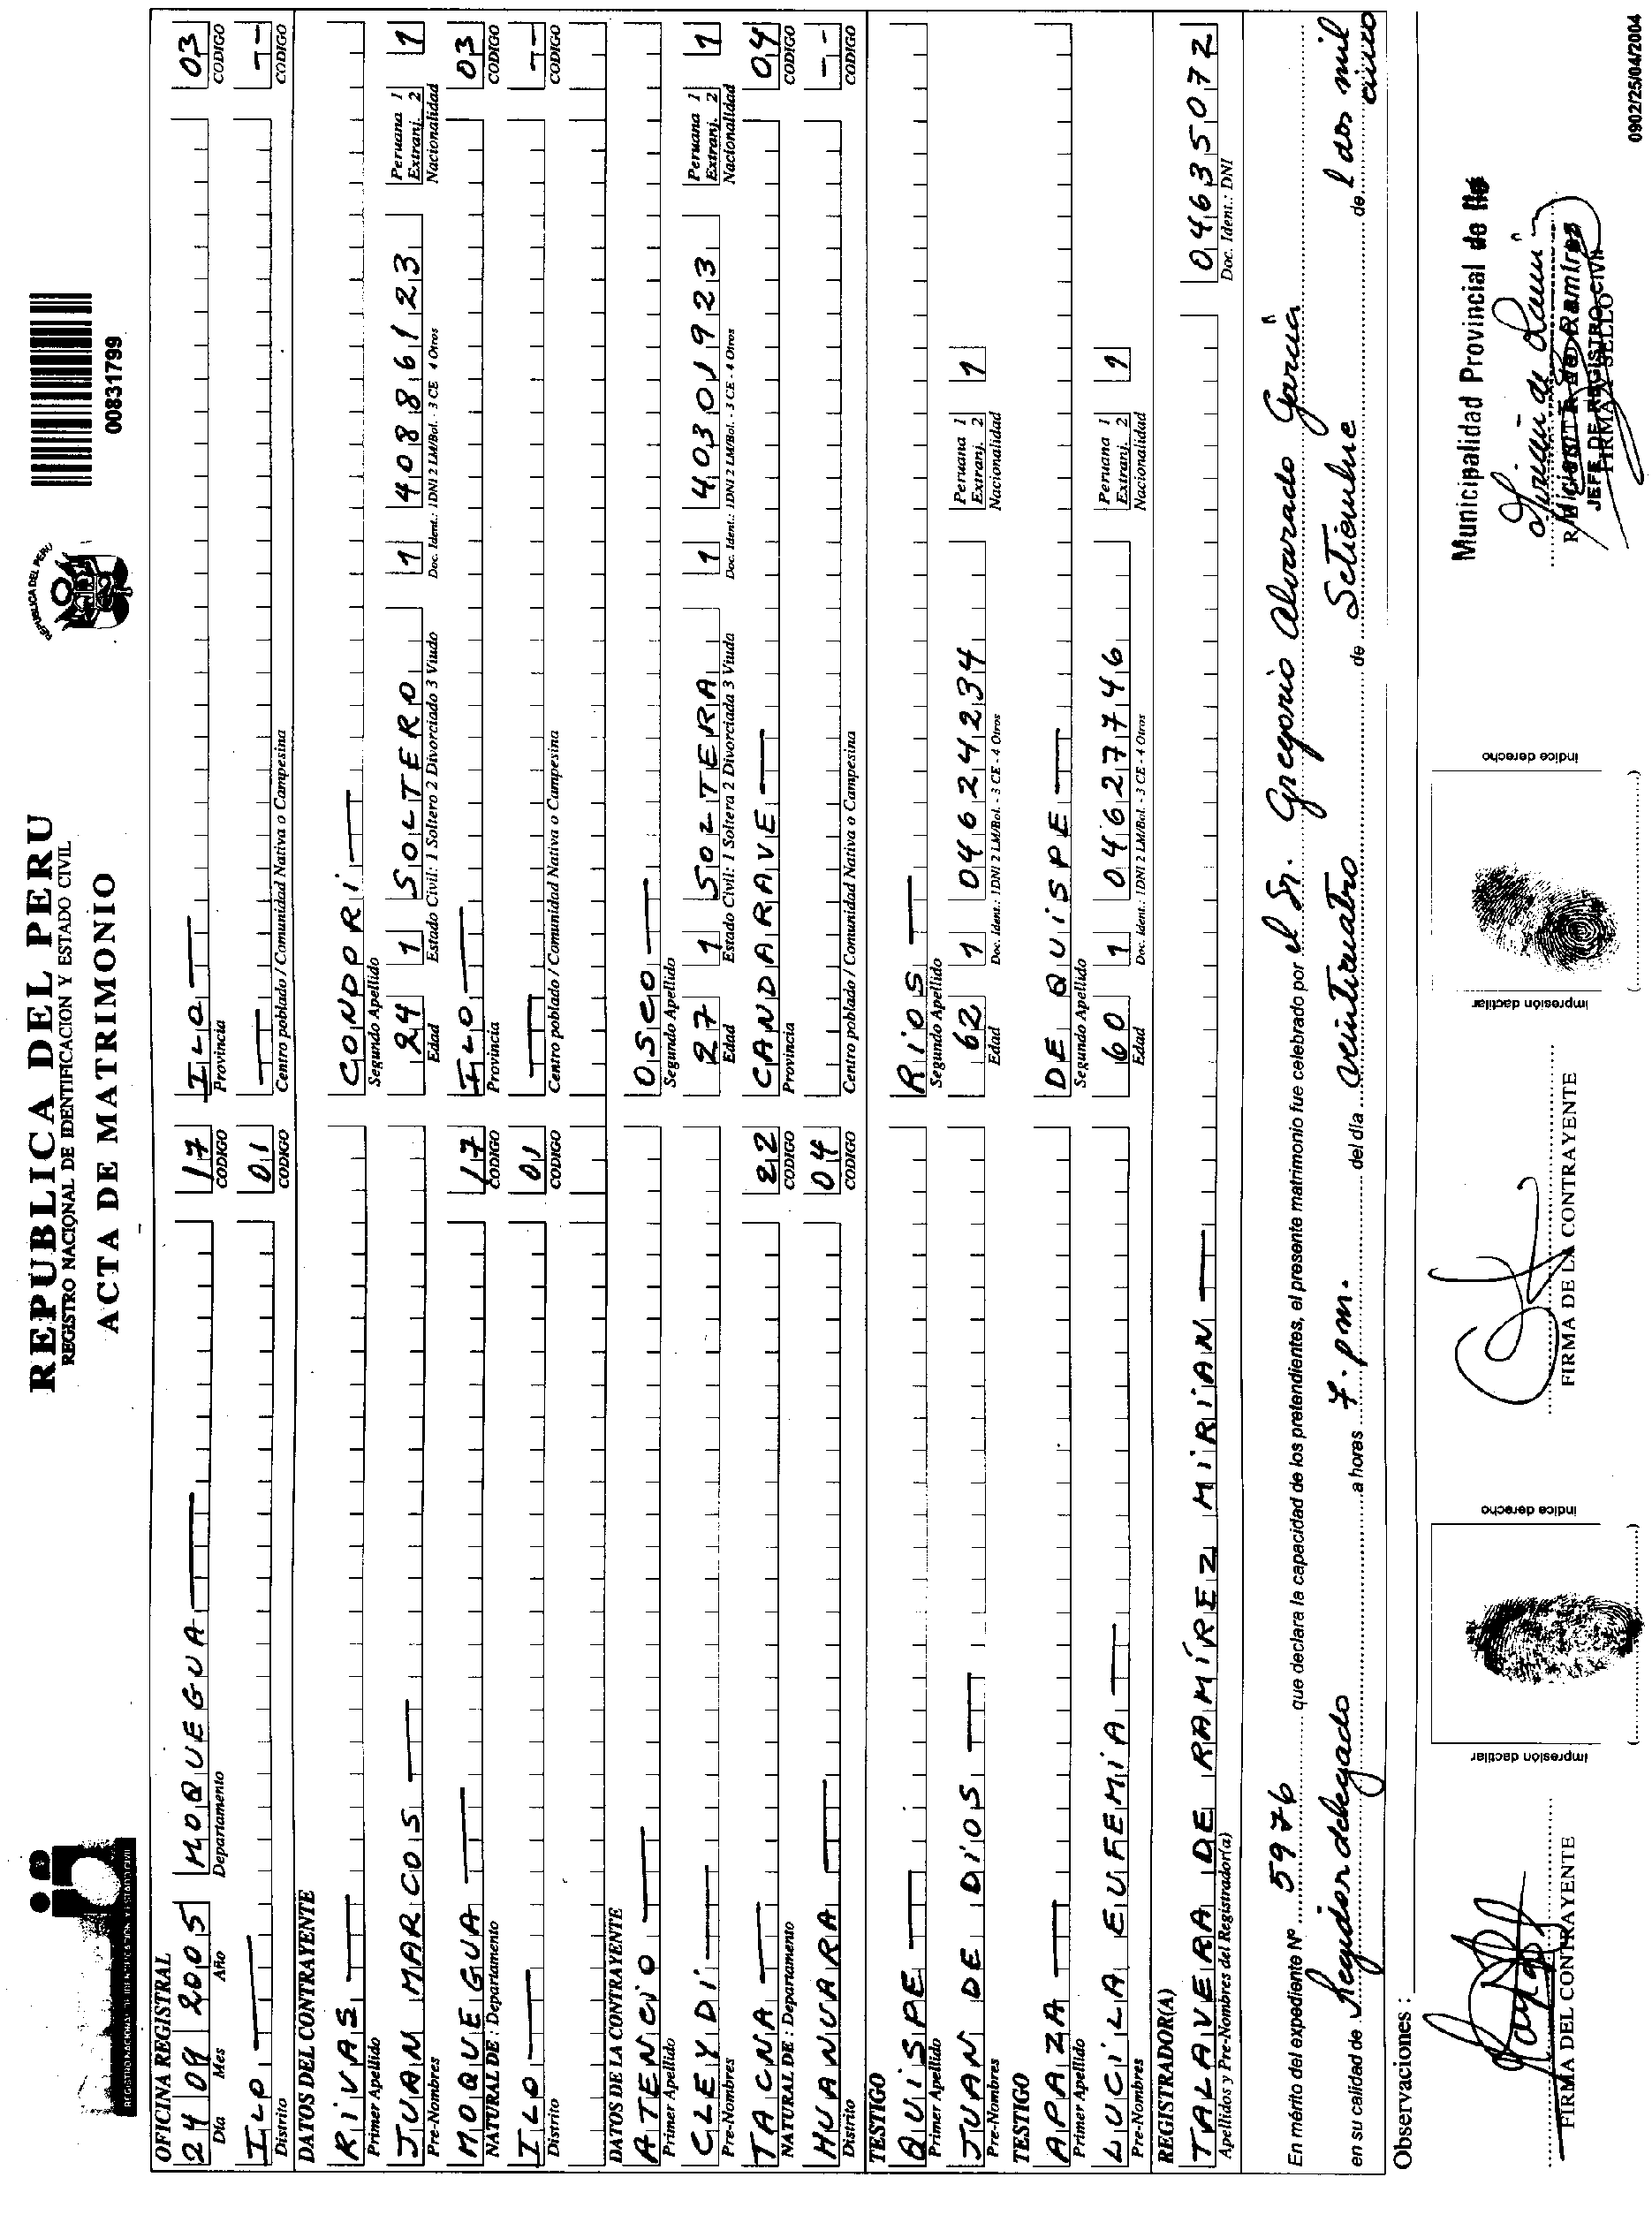 REPUBLICA DEL PERU
REGISTRO NACIONAL DE IDENTIFICACION Y ESTADO CIVIL
ACTA DE MATRIMONIO
REPUBLICA DEL PERU
00831799
OFICINA REGISTRAL
24 09 2005 MOQUEGUA 17 ILO 03
Día Mes Año Departamento CODIGO Provincia CODIGO
ILO 01
Distrito CODIGO Centro poblado / Comunidad Nativa o Campesina CODIGO
DATOS DEL CONTRAYENTE
RIVAS CONDORI
Primer Apellido Segundo Apellido
JUAN MARCOS 24 1 SOLTERO 1 40886123 Peruana 1 Extranj. 2 1
Pre-Nombres Edad Estado Civil: 1 Soltero 2 Divorciado 3 Viudo Doc. Ident.: 1DNI 2 LM/Bol. - 3 CE - 4 Otros Nacionalidad
MOQUEGUA 17 ILO 03
NATURAL DE : Departamento CODIGO Provincia CODIGO
ILO 01
Distrito CODIGO Centro poblado / Comunidad Nativa o Campesina CODIGO
DATOS DE LA CONTRAYENTE
ATENCIO OSCO
Primer Apellido Segundo Apellido
CLEYDI 27 1 SOLTERA 1 40301923 Peruana 1 Extranj. 2 1
Pre-Nombres Edad Estado Civil: 1 Soltera 2 Divorciada 3 Viuda Doc. Ident.: 1DNI 2 LM/Bol. - 3 CE - 4 Otros Nacionalidad
TACNA 22 CANDARAVE 04
NATURAL DE : Departamento CODIGO Provincia CODIGO
HUANUARA 04 --
Distrito CODIGO Centro poblado / Comunidad Nativa o Campesina CODIGO
TESTIGO
QUISPE RIOS
Primer Apellido Segundo Apellido
JUAN DE DIOS 62 1 04624234 Peruana 1 Extranj. 2 1
Pre-Nombres Edad Doc. Ident.: 1DNI 2 LM/Bol. - 3 CE - 4 Otros Nacionalidad
TESTIGO
APAZA DE QUISPE
Primer Apellido Segundo Apellido
LUCILA EUFEMIA 60 1 04627746 Peruana 1 Extranj. 2 1
Pre-Nombres Edad Doc. Ident.: 1DNI 2 LM/Bol. - 3 CE - 4 Otros Nacionalidad
REGISTRADOR(A)
TALAVERA DE RAMÍREZ MIRIAN 04635072
Apellidos y Pre-Nombres del Registrador(a) Doc. Ident.: DNI
En mérito del expediente Nº 5976 que declara la capacidad de los pretendientes, el presente matrimonio fue celebrado por el Sr. Gregorio Alvarado García
en su calidad de Regidor delegado a horas 7. pm. del día veinticuatro de Setiembre de l dos mil cinco
Observaciones :
Municipalidad Provincial de Ilo
JEFE DE REGISTRO CIVIL
FIRMA Y SELLO
FIRMA DEL CONTRAYENTE
impresión dactilar índice derecho
FIRMA DE LA CONTRAYENTE
impresión dactilar índice derecho
0902/25/04/2004